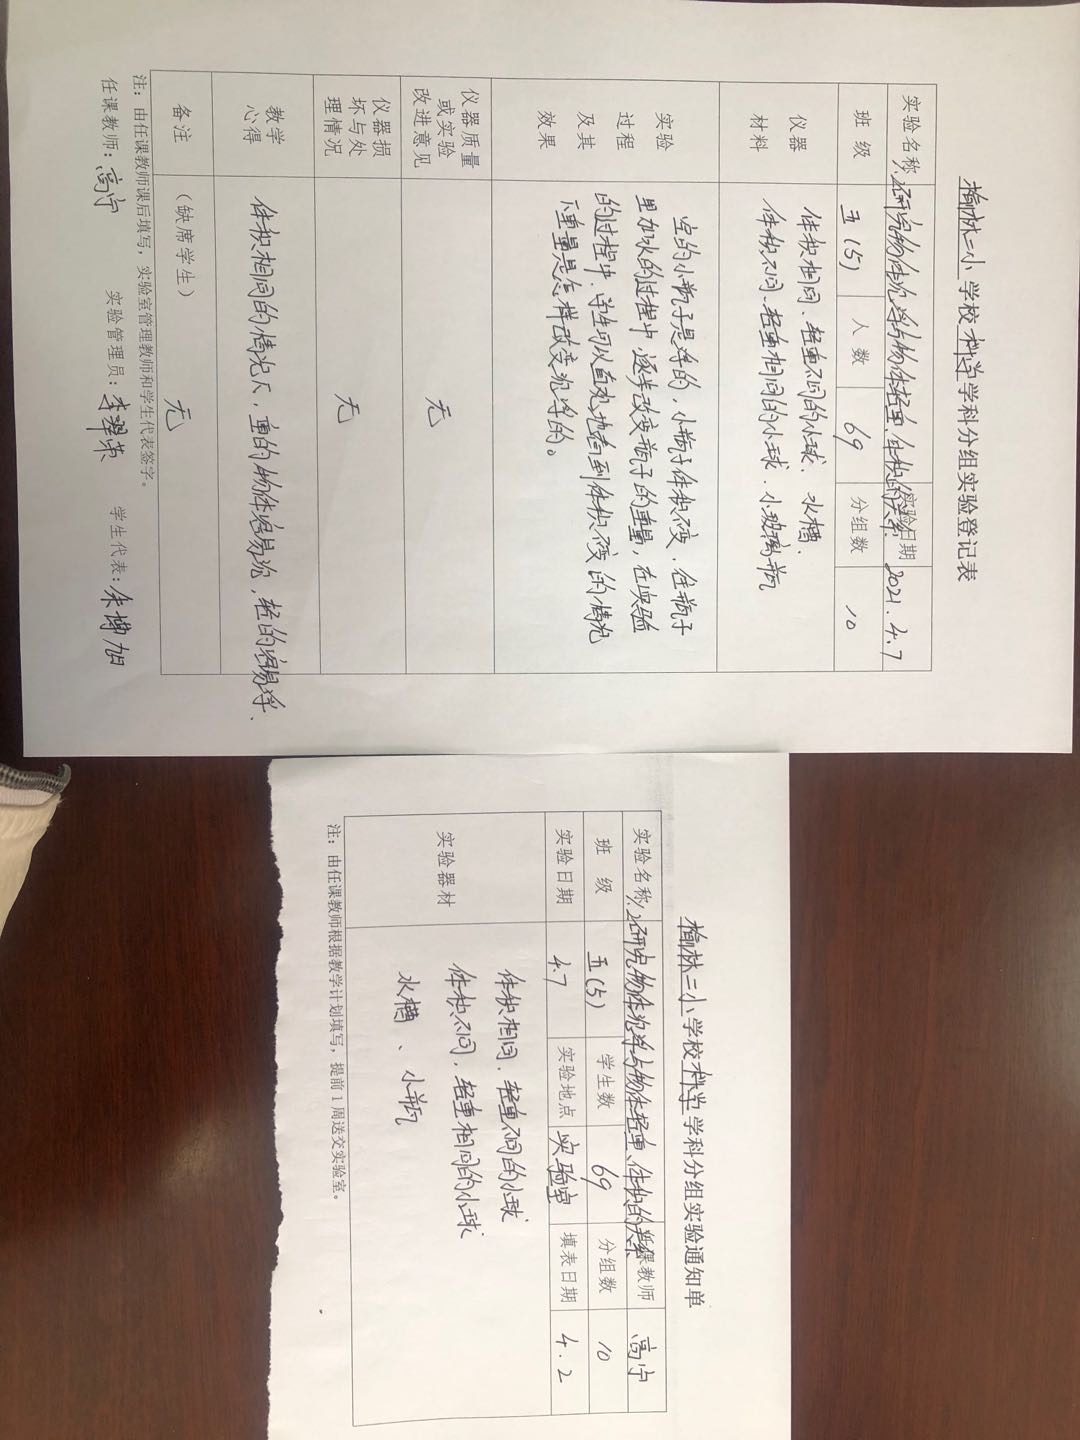 榆林三小学校科学学科分组实验登记表
实验名称 1.2研究物体沉浮与物体轻重、体积的关系 实验日期 2021.4.7
班 级 五(5) 人 数 69 分组数 10
仪器
材料
体积相同、轻重不同的小球、水槽、
体积不同、轻重相同的小球、小玻璃瓶
实验
过程
及其
效果
空的小瓶子是浮的,小瓶子体积不变,往瓶子
里加水的过程中,逐步改变瓶子的重量,在实验
的过程中,学生可以直观地看到体积不变的情况
下重量是怎样改变沉浮的。
仪器质量
或实验
改进意见
无
仪器损
坏与处
理情况
无
教学
心得
体积相同的情况下,重的物体容易沉,轻的容易浮.
备注 (缺席学生) 无
注:由任课教师课后填写,实验室管理教师和学生代表签字。
任课教师:高宁 实验管理员:李翠荣 学生代表:朱博旭
榆林三小学校科学学科分组实验通知单
实验名称 1.2研究物体沉浮与物体轻重、体积的关系 任课教师 高宁
班 级 五(5) 学生数 69 分组数 10
实验日期 4.7 实验地点 实验室 填表日期 4.2
实验器材
体积相同,轻重不同的小球
体积不同,轻重相同的小球
水槽、小瓶
注:由任课教师根据教学计划填写,提前1周送交实验室。